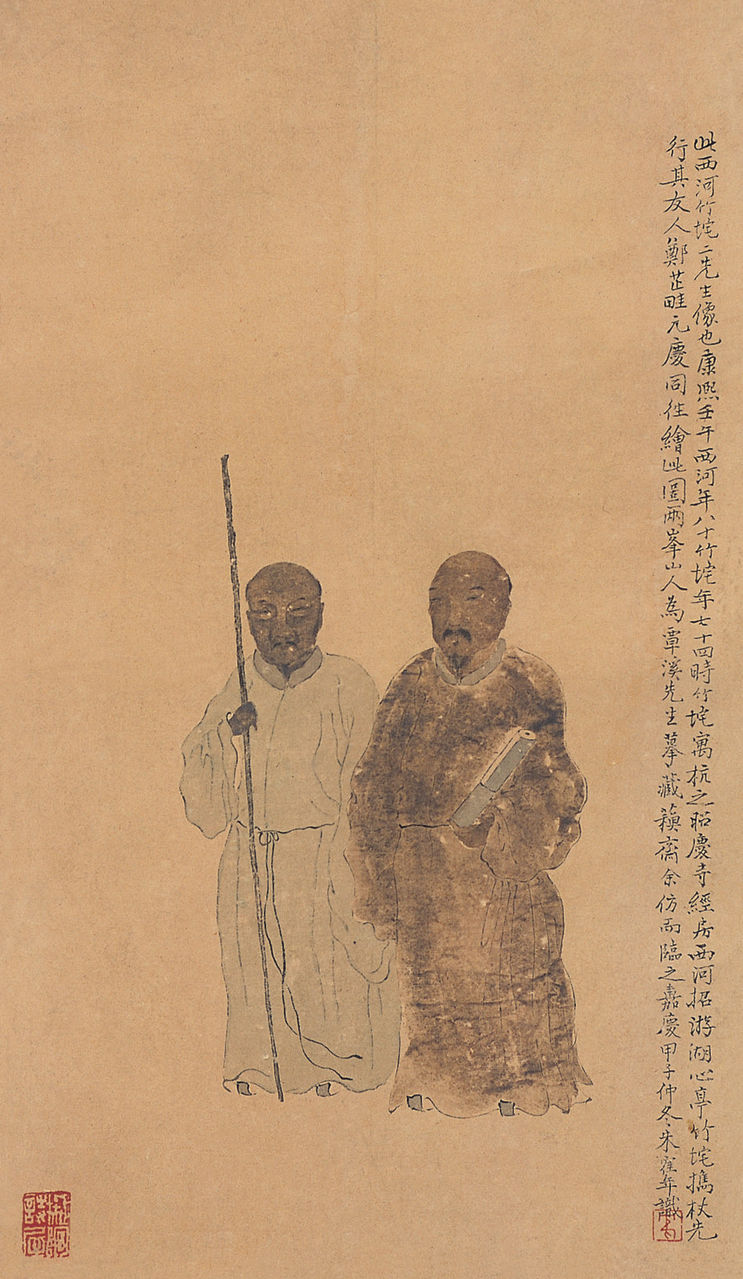 此西河竹垞二先生像也康熙壬午西河年八十竹垞年七十四時竹垞寓杭之昭慶寺經房西河招游湖心亭竹垞攜杖先
行其友人鄭芷畦元慶同往繪此圖兩峯山人為覃溪先生摹藏蘇齋余仿而臨之嘉慶甲子仲冬朱寉年識